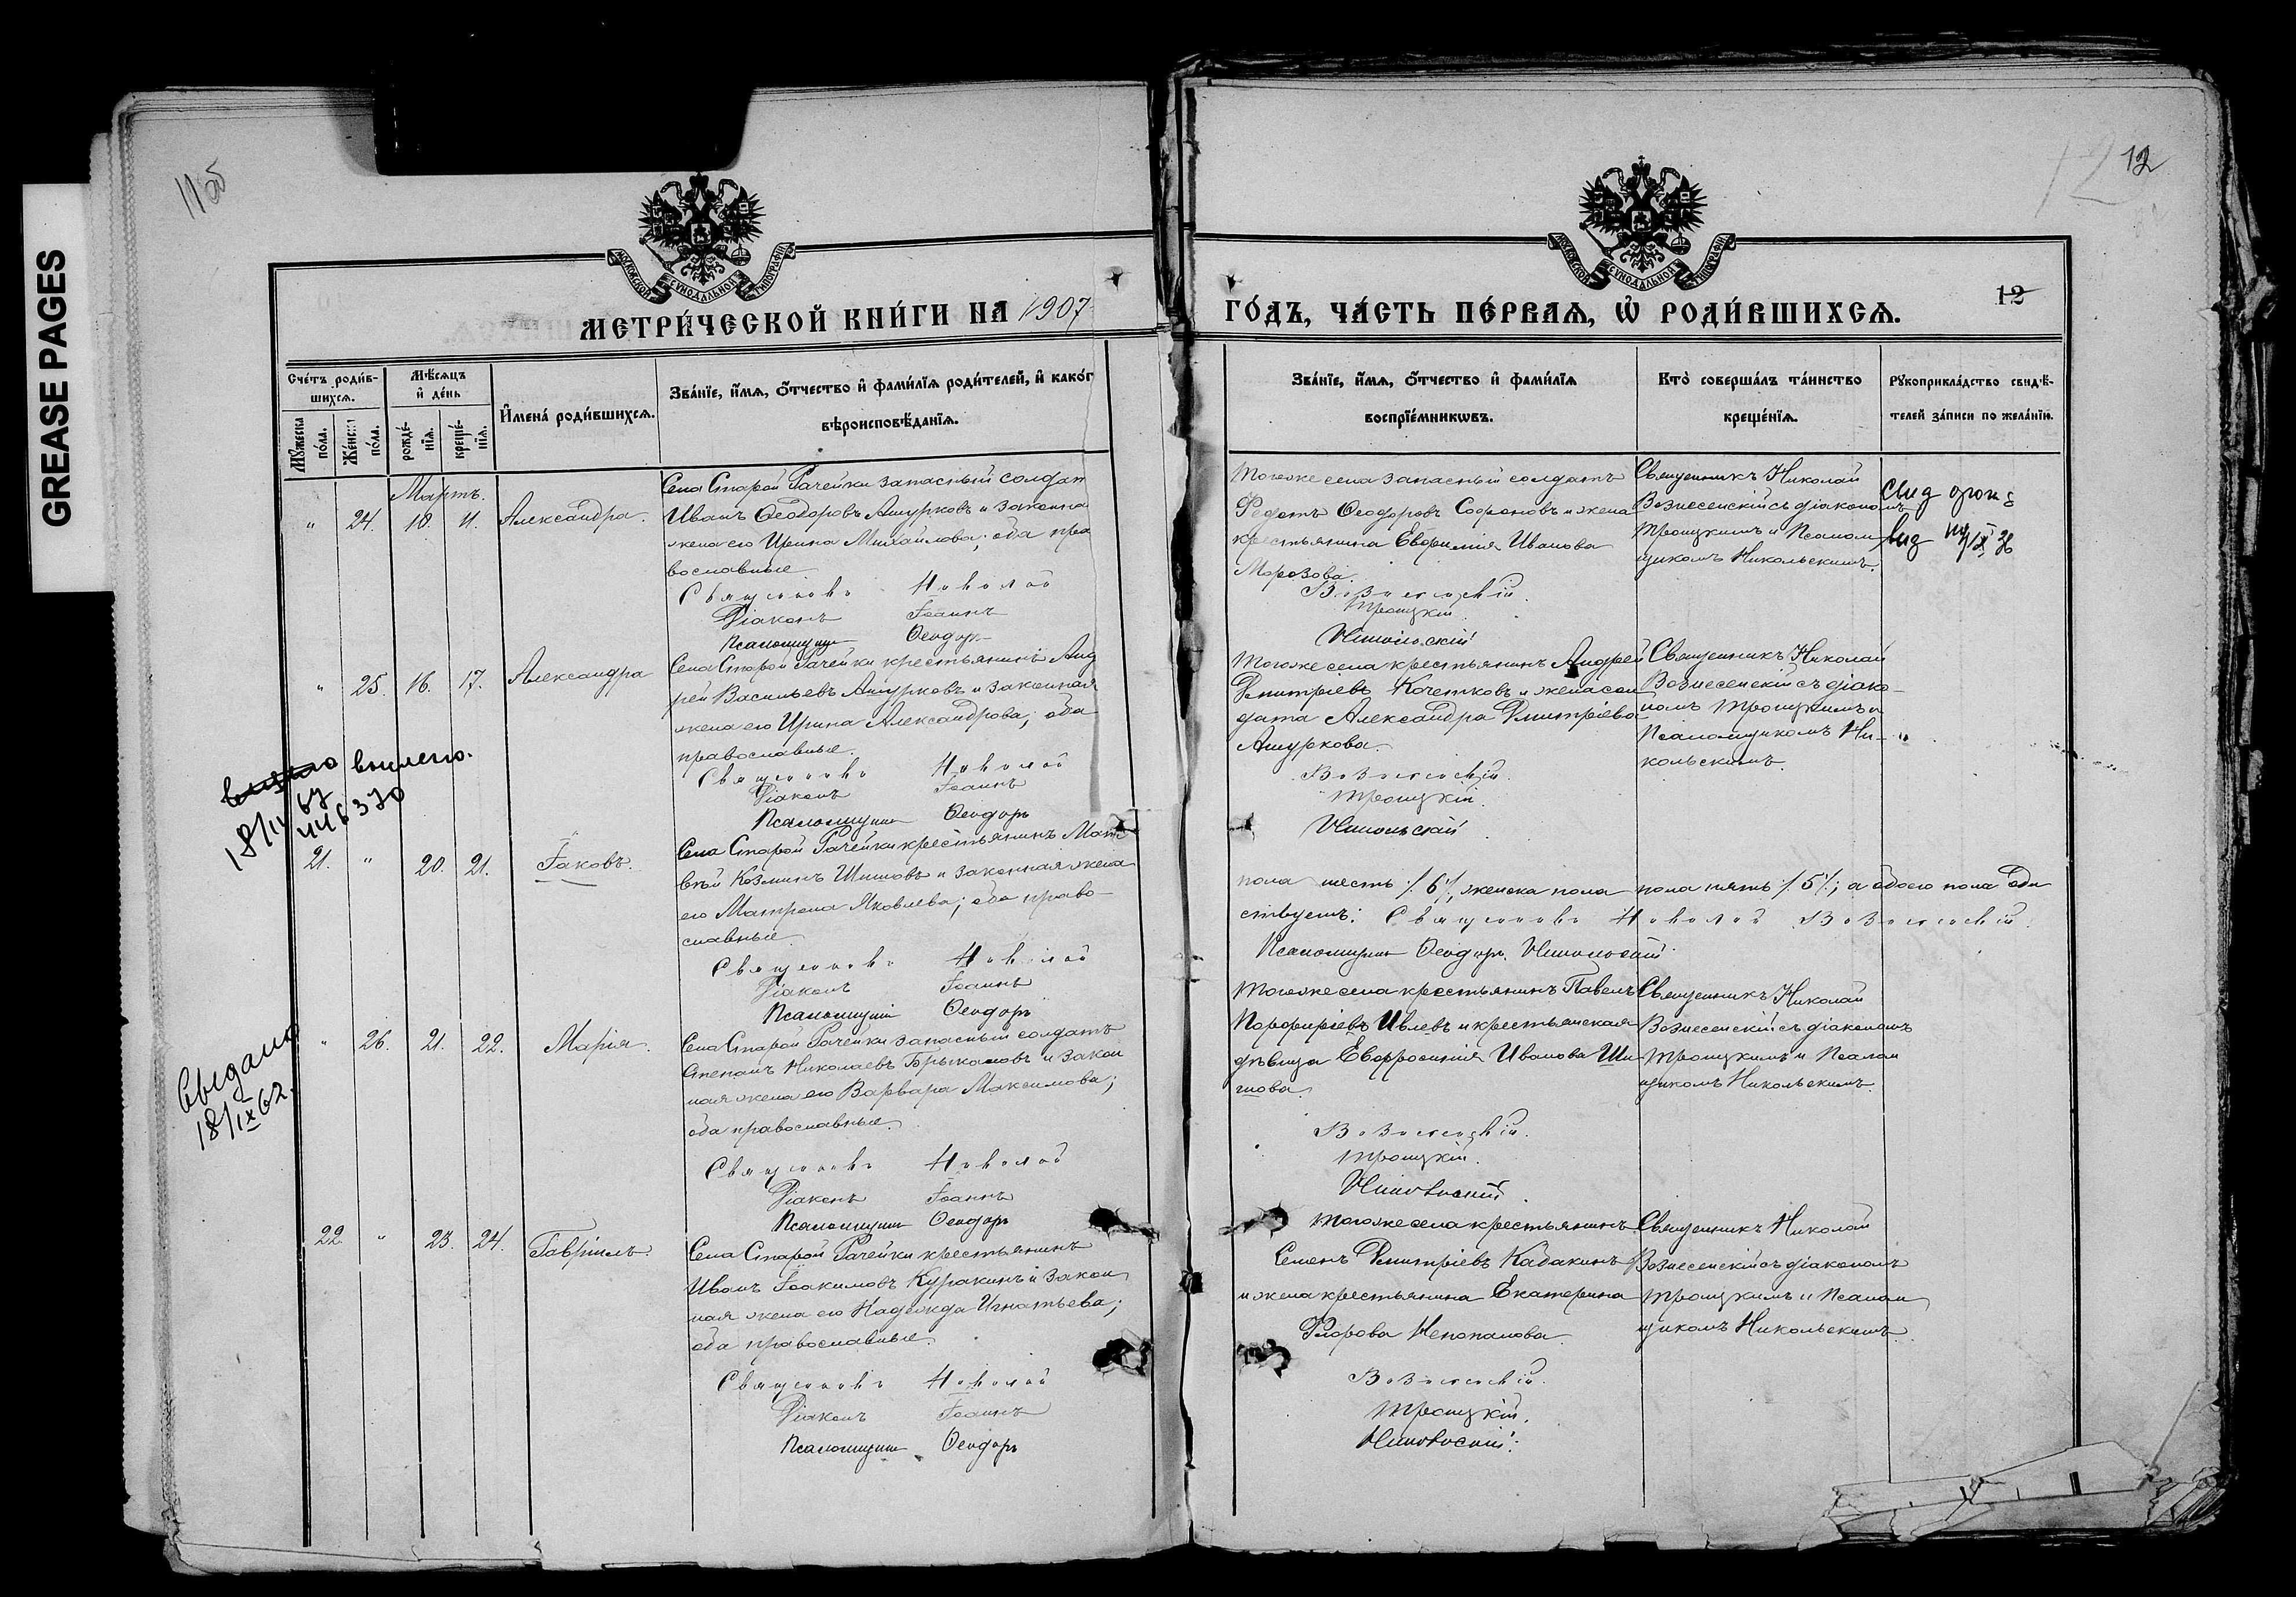 GREASE PAGES
11 об
12
12
МОСКОВСКОЙ СѴНОДАЛЬНОЙ ТИПОГРАФІИ
МОСКОВСКОЙ СѴНОДАЛЬНОЙ ТИПОГРАФІИ
МЕТРИ́ЧЕСКОЙ КНИ́ГИ НА 1907
ГО́ДЪ, ЧА́СТЬ ПЕ́РВАЯ, Ѡ҆ РОДИ́ВШИХСЯ.
12
Сче́тъ роди́в-
шихся.
Мꙋжеска по́ла.
Же́нска по́ла.
Мѣ́сяцъ
и҆ де́нь
рожде́-нїя.
креще́-нїя.
И҆мена̀ роди́вшихся.
Зва́нїе, и҆́мя, ѻ҆́тчество и҆ фами́лїя роди́телей, и҆ како́г
вѣроисповѣ́данїя.
Зва́нїе, и҆́мя, ѻ҆́тчество и҆ фами́лїя
воспрїе́мникωвъ.
Кто̀ соверша́лъ та́инство
креще́нїя.
Рꙋкоприкла́дство свидѣ́-
телей за́писи по жела́нїю.
Мартъ.
" 24. 10. 11. Александра.
Села Старой Рачейки запасный солдат
Иванъ Ѳеодоровъ Ашурковъ и законна
жена его Ирина Михайлова; оба пра
вославные
Священникъ Николай
Діаконъ Іоаннъ
Псаломщикъ Ѳеодоръ
Тогоже села запасный солдатъ
Федотъ Ѳеодоровъ Софоновъ и жена
крестьянина Евфимія Иванова
Морозова.
Вознесенскій.
Троицкій
Никольскій
Священникъ Николай
Вознесенскій съ діакономъ
Троицкимъ и Псалом
щикомъ Никольскимъ.
" 25. 16. 17. Александра
Села Старой Рачейки крестьянинъ Анд
рей Васильевъ Ашурковъ и законная
жена его Ирина Александрова; оба
православные.
Священникъ Николай
Діаконъ Іоаннъ
Псаломщикъ Ѳеодоръ
Тогоже села крестьянинъ Андрей
Димитріевъ Кочетковъ и жена сол
дата Александра Димитріева
Ашуркова.
Вознесенскій.
Троицкій.
Никольскій
Священникъ Николай
Вознесенскій съ діако-
номъ Троицкимъ и
Псаломщикомъ Ни-
кольскимъ.
18/IV 67
446370
21. " 20. 21. Іаковъ.
Села Старой Рачейки крестьянинъ Мат
вѣй Козминъ Шишовъ и законная жена
его Матрена Яковлева; оба право-
славные.
Священникъ Николай
Діаконъ Іоаннъ
Псаломщикъ Ѳеодоръ
пола шесть /. 6 /., женска пола пола пять /. 5 /.; а обоего пола оди
ствуетъ: Священникъ Николай Вознесенскій.
Псаломщикъ Ѳеодоръ Никольскій
Выдано
18/IX 62.
" 26. 21. 22. Марія.
Села Старой Рачейки запасный солдатъ
Степанъ Николаевъ и закон
ная жена его Варвара Максимова;
оба православные.
Священникъ Николай
Діаконъ Іоаннъ
Псаломщикъ Ѳеодоръ
Тогоже села крестьянинъ Павелъ
Порфиріевъ Ивлевъ и крестьянская
дѣвица Евфросинія Иванова Ши
шова.
Вознесенскій.
Троицкій.
Никольскій.
Священникъ Николай
Вознесенскій съ діакономъ
Троицкимъ и Псалом
щикомъ Никольскимъ.
22. " 23. 24. Гавріилъ.
Села Старой Рачейки крестьянинъ
Иванъ Іоакимовъ Куракинъ и закон
ная жена его Надежда Игнатьева;
оба православные.
Священникъ Николай
Діаконъ Іоаннъ
Псаломщикъ Ѳеодоръ
Тогоже села крестьянинъ
Семенъ Димитріевъ Кабакинъ
и жена крестьянина Екатерина
Флорова Непопалова.
Вознесенскій.
Троицкій.
Никольскій.
Священникъ Николай
Вознесенскій съ діакономъ
Троицкимъ и Псалом
щикомъ Никольскимъ.